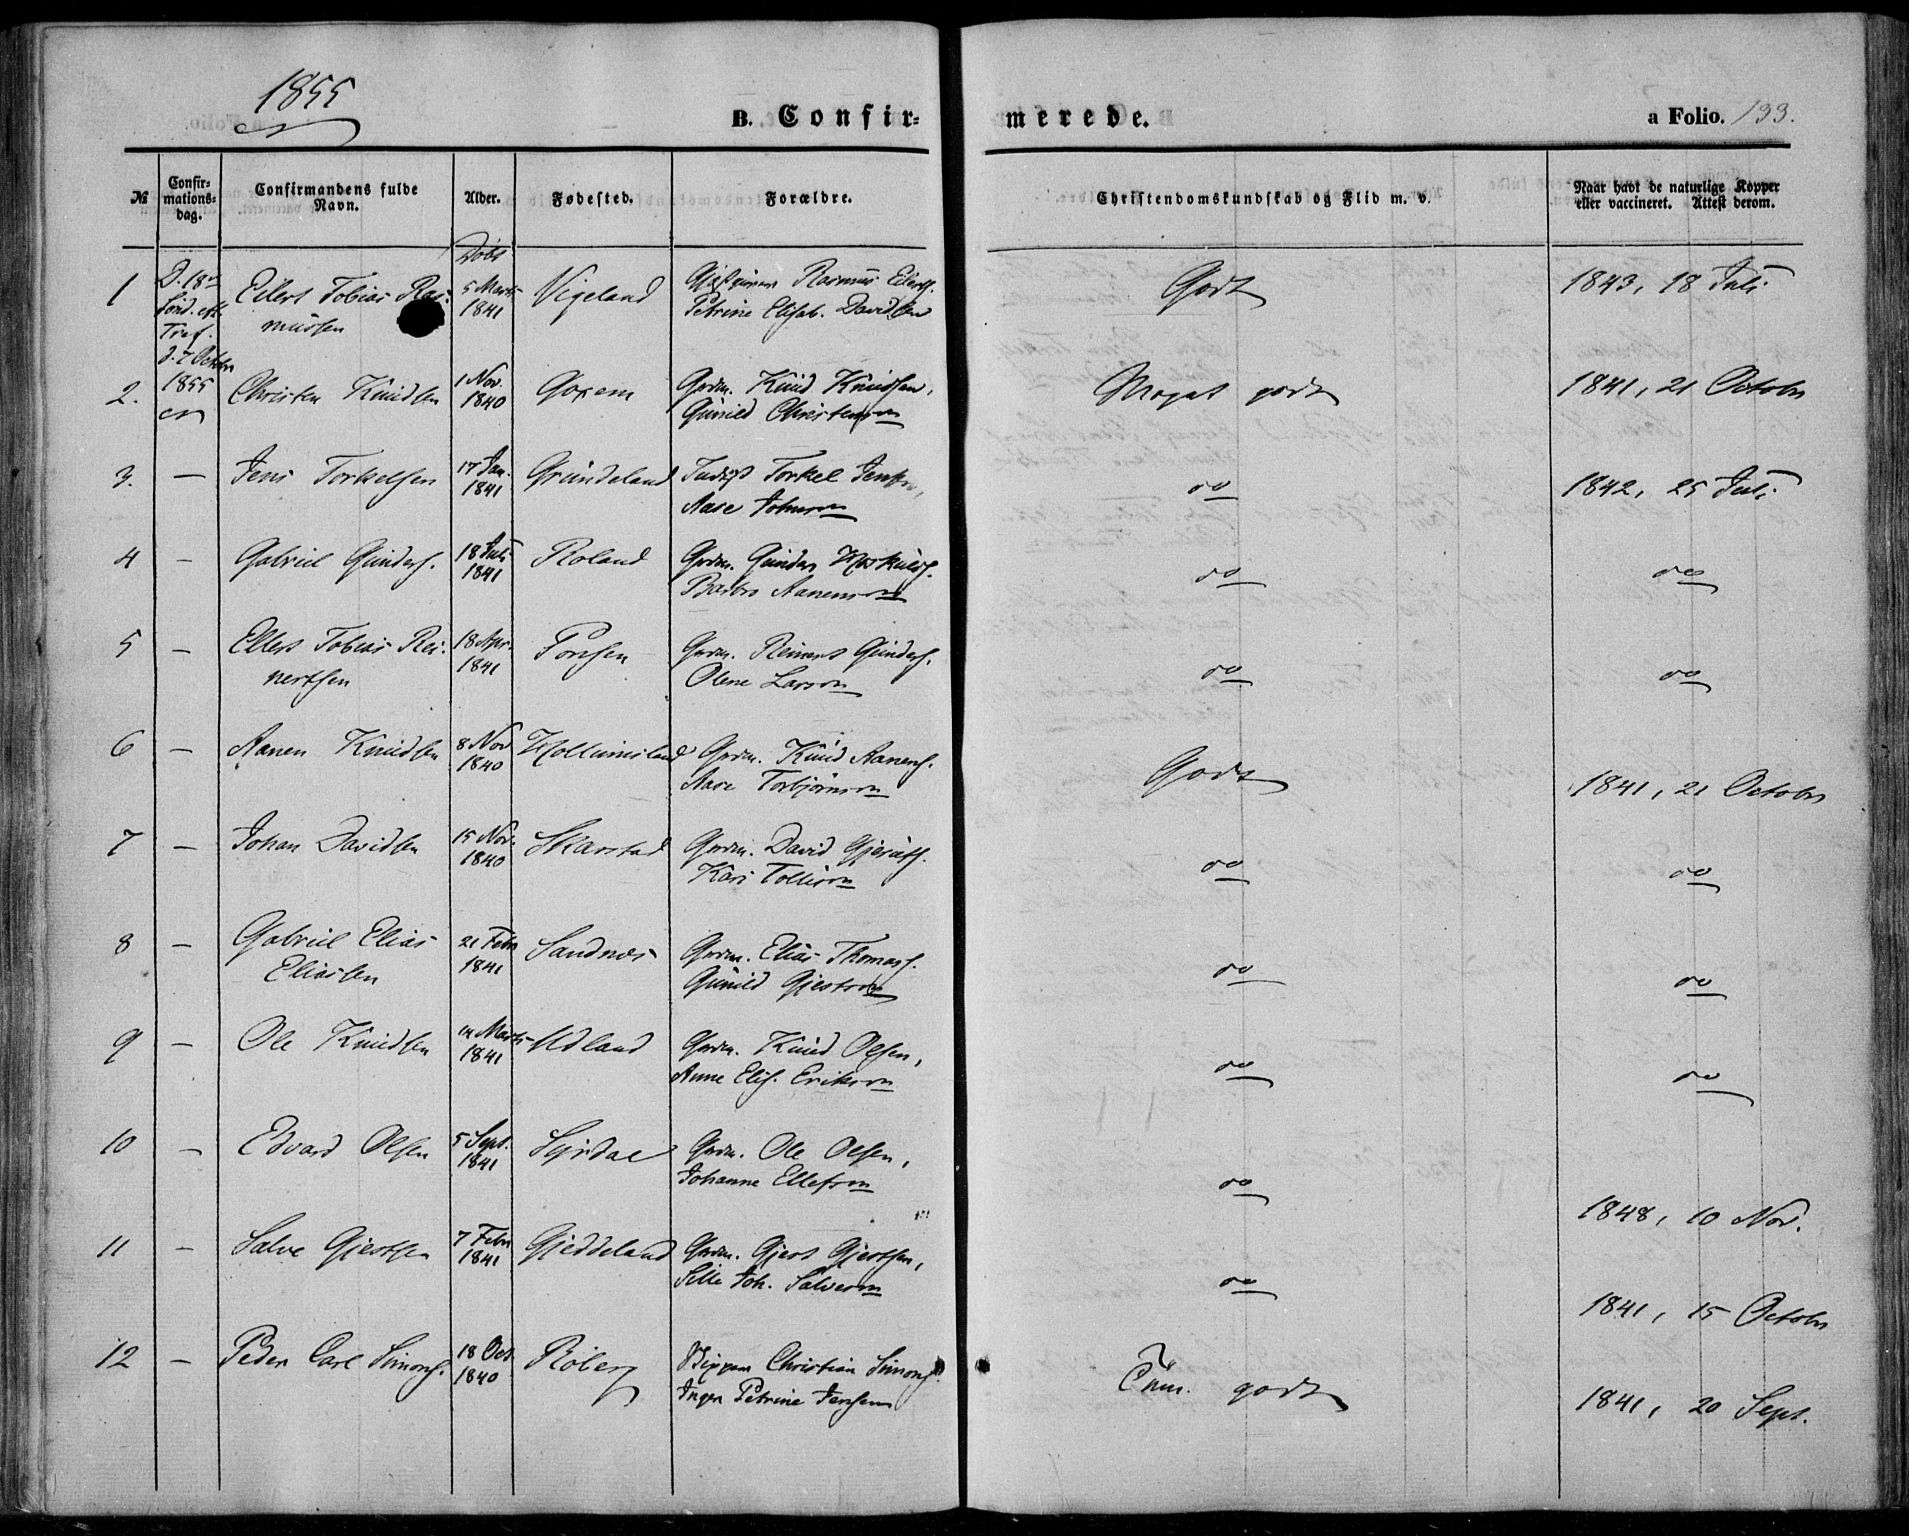 1855
B. Confir-
merede.
a Folio. 133.
№
Confir-
mations-
dag.
Confirmandens fulde
Navn.
Alder.
Fødested.
Forældre.
Christendomskundskab og Flid m. v.
Naar havt de naturlige Kopper
eller vaccineret. Attest derom.
Døbt
1 D. 18de Sönd. eft. Tref. d. 7 Octobr 1855 Eilert Tobias Ras-
mussen 5 Marts 1841 Vigeland Rasmus Eilerts.
Petrine Elisab. Davidsen Godt 1843, 18 Juli
2. Christen Knudsen 1 Nov. 1840 Goxem Grdm. Knud Knudsen,
Gunild Christensen Meget godt 1841, 21 Octobr
3. — Jens Torkelsen 17 Jan. 1841 Grundeland Torkel Jensen,
Aase Johnsen do 1842, 25 Juli
4 — Gabriel Gunders. 18 Juli 1841 Roland Grdm. Gunder
Barbro Aanensen do do
5 — Ellert Tobias Rei-
nertsen 18 Apr. 1841 Grdm. Reinert Gunders.
Olene Larsen do do
6 — Aanen Knudsen 8 Nov 1840 Grdm. Knud Aanens.
Aase Torbjörnsen Godt 1841, 21 Octobr
7 — Johan Davidsen 15 Nov. 1840 Skarstad Grdm. David
Kari do do
8 — Gabriel Elias
Eliassen 21 Febr 1841 Sandnes Grdm. Elias Thomas.
Gunild Gjertsen do do
9 — Ole Knudsen 14 Marts 1841 Udland Grdm. Knud Olsen,
Anne Elis. Eriksen do do
10 — Edvard Olsen 5 Sept. 1841 Syrdal Grdm. Ole Olsen,
Johanne Ellefsen do 1848, 10 Nov.
11 — Salve Gjertsen 7 Febr 1841 Gjeddeland Grdm. Gjert Gjertsen,
Sille Joh. Salvesen do 1841, 15 Octobr
12 — Peder Carl Simons. 18 Oct 1840 Röberg Christian Simons.
Inger Petrine Jensen godt 1841, 20 Sept.